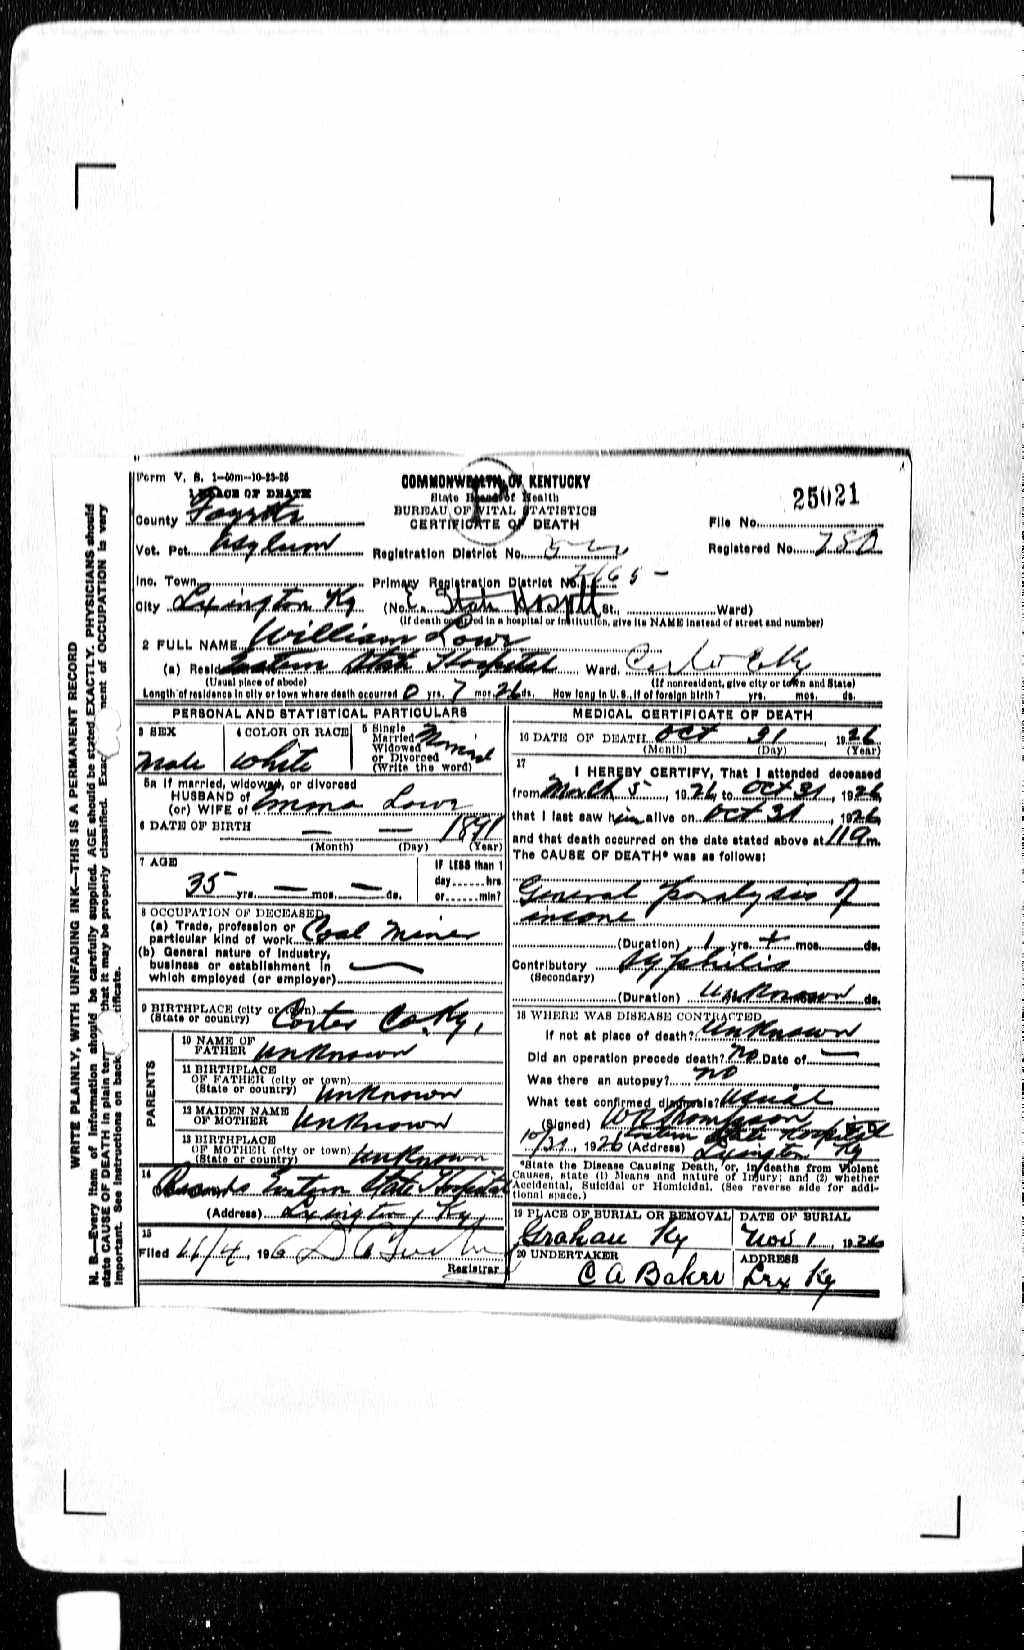 Form V. S. 1-50m-10-23-25
COMMONWEALTH OF KENTUCKY
State Board of Health
BUREAU OF VITAL STATISTICS
CERTIFICATE OF DEATH
25021
1 PLACE OF DEATH
County Fayette
File No.
Vot. Pct. Asylum
Registration District No.
Registered No. 780
Inc. Town
Primary Registration District No. 65-
City Lexington Ky (No. E. State Hospitl St., Ward)
(If death occurred in a hospital or institution, give its NAME instead of street and number)
2 FULL NAME William Lowe
(a) Resid Eastern State Hospital Ward. Carter Co Ky
(Usual place of abode) (If nonresident, give city or town and State)
Length of residence in city or town where death occurred 0 yrs. 7 mos. 26 ds. How long in U.S., if of foreign birth? yrs. mos. ds.
PERSONAL AND STATISTICAL PARTICULARS
3 SEX
Male
4 COLOR OR RACE
White
5 Single
Married
Widowed
or Divorced
(Write the word)
Married
5a If married, widowed, or divorced
HUSBAND of
(or) WIFE of Emma Lowe
6 DATE OF BIRTH — — 1891
(Month) (Day) (Year)
7 AGE
35 yrs. — mos. — ds.
IF LESS than 1
day......hrs.
or......min?
8 OCCUPATION OF DECEASED
(a) Trade, profession or
particular kind of work Coal Miner
(b) General nature of industry,
business or establishment in
which employed (or employer) —
9 BIRTHPLACE (city or town)
(State or country) Carter Co. Ky,
PARENTS
10 NAME OF
FATHER Unknown
11 BIRTHPLACE
OF FATHER (city or town)
(State or country) Unknown
12 MAIDEN NAME
OF MOTHER Unknown
13 BIRTHPLACE
OF MOTHER (city or town)
(State or country) Unknown
14
Records Eastern State Hospital
(Address) Lexington, Ky,
15
Filed 11/4, 1926
Registrar
MEDICAL CERTIFICATE OF DEATH
16 DATE OF DEATH Oct 31, 1926
(Month) (Day) (Year)
17
I HEREBY CERTIFY, That I attended deceased
from March 5, 1926, to Oct 31, 1926,
that I last saw him alive on Oct 31, 1926
and that death occurred on the date stated above at 119 m.
The CAUSE OF DEATH* was as follows:
General Paralysis of
insane
(Duration) 1 yrs. + mos. ds.
Contributory Syphilis
(Secondary)
(Duration) Unknown ds.
18 WHERE WAS DISEASE CONTRACTED
If not at place of death? Unknown
Did an operation precede death? No Date of —
Was there an autopsy? No
What test confirmed diagnosis? Usual
(Signed) W R Thompson
10/31, 1926 (Address) Eastern State Hospital
Lexington Ky
*State the Disease Causing Death, or, in deaths from Violent
Causes, state (1) Means and nature of Injury; and (2) whether
Accidental, Suicidal or Homicidal. (See reverse side for addi-
tional space.)
19 PLACE OF BURIAL OR REMOVAL
Grahan Ky
DATE OF BURIAL
Nov 1, 1926
20 UNDERTAKER
C A Baker
ADDRESS
Lex Ky
WRITE PLAINLY, WITH UNFADING INK—THIS IS A PERMANENT RECORD
N. B.—Every item of information should be carefully supplied. AGE should be stated EXACTLY. PHYSICIANS should
state CAUSE OF DEATH in plain ter that it may be properly classified. Exac ment of OCCUPATION is very
important. See instructions on back tificate.